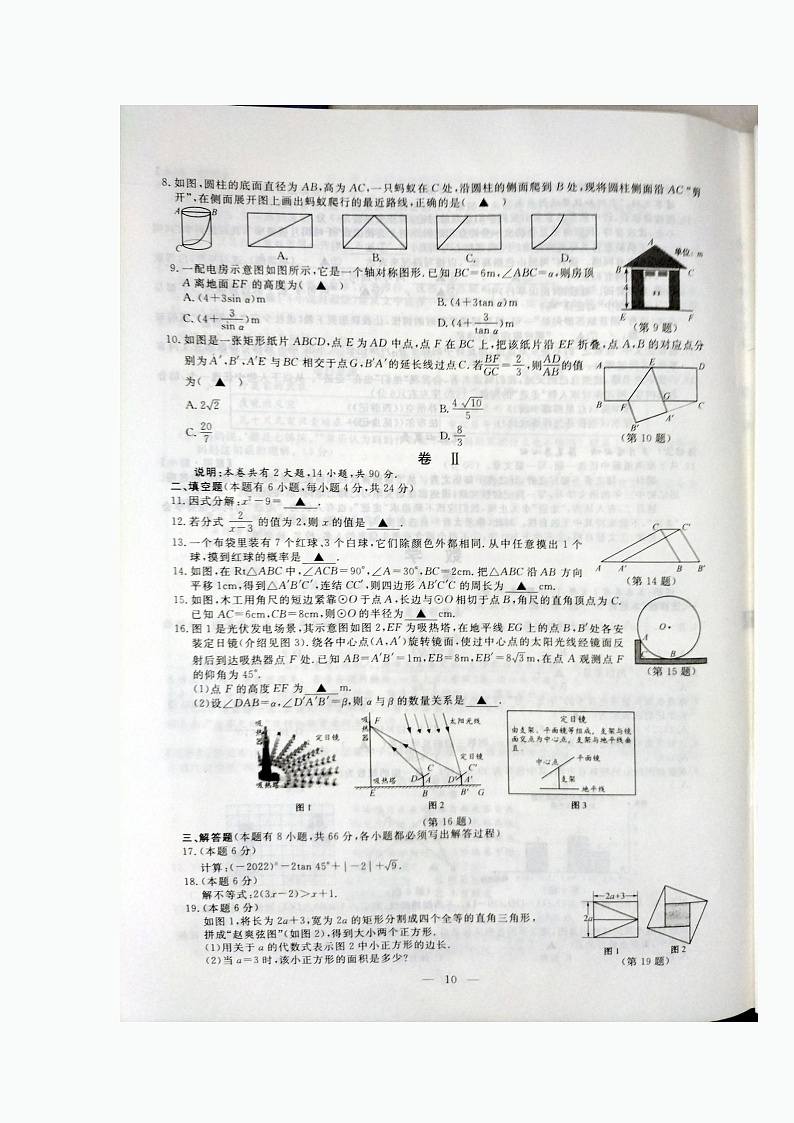 8. 如图,圆柱的底面直径为 AB,高为 AC,一只蚂蚁在 C 处,沿圆柱的侧面爬到 B 处,现将圆柱侧面沿 AC“剪
开”,在侧面展开图上画出蚂蚁爬行的最近路线,正确的是( ▲ )
A B
C
A. B. C. D.
9. 一配电房示意图如图所示,它是一个轴对称图形.已知 BC=6m,∠ABC=α,则房顶
A 离地面 EF 的高度为( ▲ )
A. (4+3sin α)m B. (4+3tan α)m
C. (4+3/sin α)m D. (4+3/tan α)m
A 单位: m
B C
4
E F
(第 9 题)
10. 如图是一张矩形纸片 ABCD,点 E 为 AD 中点,点 F 在 BC 上,把该纸片沿 EF 折叠,点 A,B 的对应点分
别为 A′,B′,A′E 与 BC 相交于点G,B′A′的延长线过点C.若BF/GC=2/3,则AD/AB的值
为( ▲ )
A. 2√2 B. 4√10/5
C. 20/7 D. 8/3
A E D
B F G C
B′ A′
(第 10 题)
卷 Ⅱ
说明:本卷共有 2 大题,14 小题,共 90 分.
二、填空题(本题有 6 小题,每小题 4 分,共 24 分)
11. 因式分解:x²-9= ▲ .
12. 若分式 2/(x-3) 的值为 2,则 x 的值是 ▲ .
13. 一个布袋里装有 7 个红球、3 个白球,它们除颜色外都相同.从中任意摸出 1 个
球,摸到红球的概率是 ▲ .
14. 如图,在 Rt△ABC 中,∠ACB=90°,∠A=30°,BC=2cm.把△ABC 沿 AB 方向
平移 1cm,得到△A′B′C′,连结 CC′,则四边形 AB′C′C 的周长为 ▲ cm.
C C′
A A′ B B′
(第 14 题)
15. 如图,木工用角尺的短边紧靠⊙O 于点 A,长边与⊙O 相切于点 B,角尺的直角顶点为 C.
已知 AC=6cm,CB=8cm,则⊙O 的半径为 ▲ cm.
O
A
C B
(第 15 题)
16. 图 1 是光伏发电场景,其示意图如图 2,EF 为吸热塔,在地平线 EG 上的点 B,B′处各安
装定日镜(介绍见图 3).绕各中心点(A,A′)旋转镜面,使过中心点的太阳光线经镜面反
射后到达吸热器点 F 处.已知 AB=A′B′=1m,EB=8m,EB′=8√3m,在点 A 观测点 F
的仰角为 45°.
(1)点 F 的高度 EF 为 ▲ m.
(2)设∠DAB=α,∠D′A′B′=β,则 α 与 β 的数量关系是 ▲ .
吸热器
定日镜
吸热塔
图 1
吸热器
F
太阳光线
定日镜
C C′
D A D′ A′
吸热塔
E B B′ G
图 2
定日镜
由支架、平面镜等组成,支架与镜
面交点为中心点,支架与地平线垂
直.
中心点 平面镜
支架
地平线
图 3
(第 16 题)
三、解答题(本题有 8 小题,共 66 分,各小题都必须写出解答过程)
17. (本题 6 分)
计算:(-2022)⁰-2tan 45°+|-2|+√9.
18. (本题 6 分)
解不等式:2(3x-2)>x+1.
19. (本题 6 分)
如图 1,将长为 2a+3,宽为 2a 的矩形分割成四个全等的直角三角形,
拼成“赵爽弦图”(如图 2),得到大小两个正方形.
(1)用关于 a 的代数式表示图 2 中小正方形的边长.
(2)当 a=3 时,该小正方形的面积是多少?
2a+3
2a
图 1 图 2
(第 19 题)
— 10 —